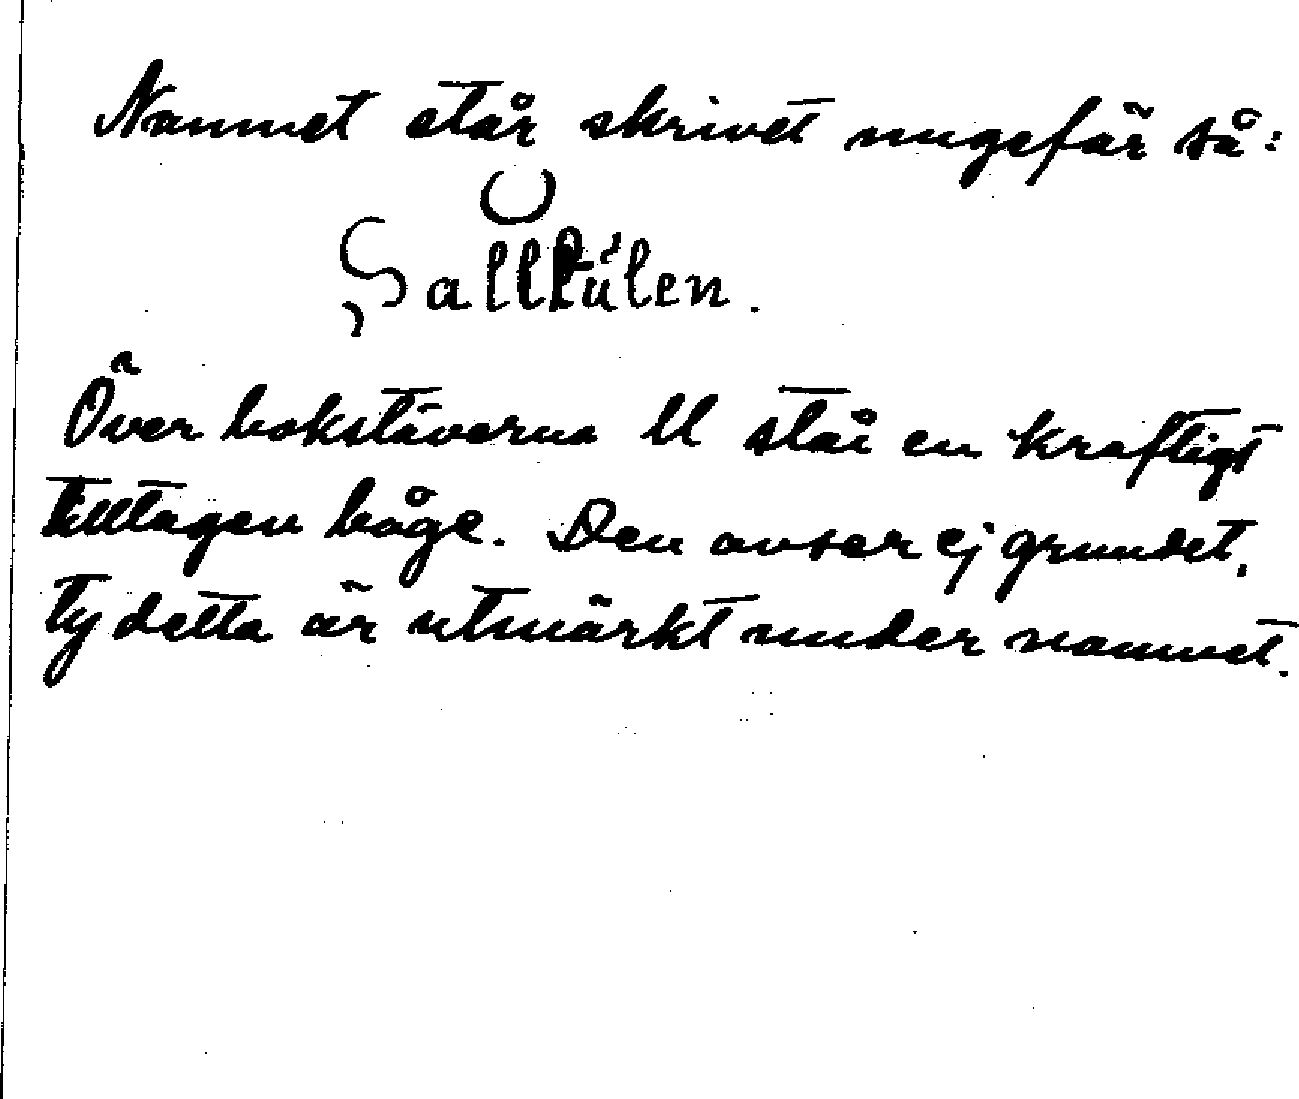 Namnet står skrivet ungefär så:
Sallkülen.
Över bokstäverna ll står en kraftigt
tilltagen båge. Den avser ej grundet,
ty detta är utmärkt under namnet.